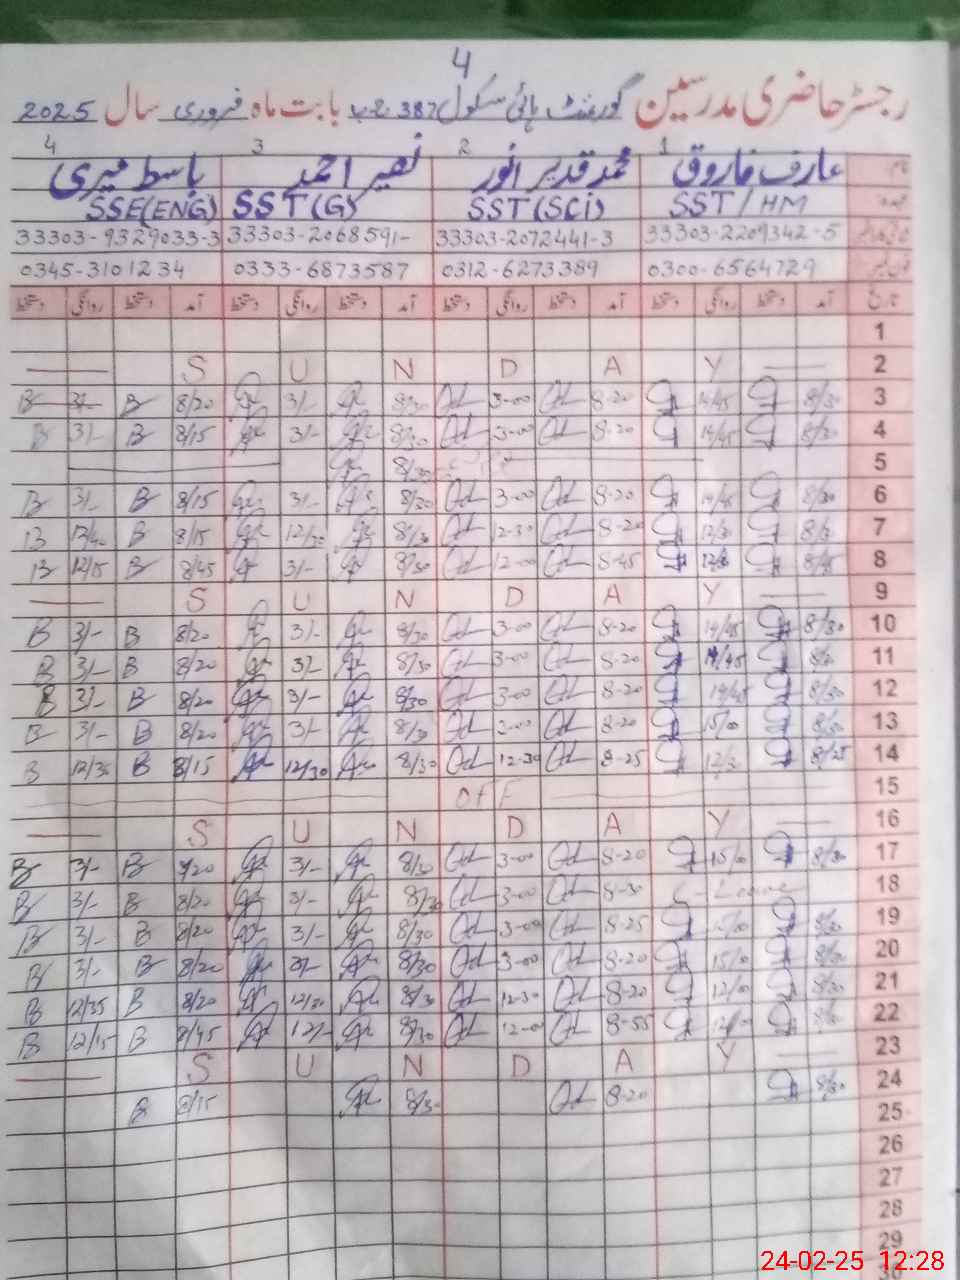 4
رجسٹر حاضری مدرسین گورنمنٹ ہائی سکول 387 ج ب بابت ماہ فروری سال 2025
1 2 3 4
نام عارف فاروق محمد قدیر انور نصیر احمد باسط میری
عہدہ SST/HM SST(SCi) SST(G) SSE(ENG)
33303-2209342-5 33303-2072441-3 33303-2068591- 33303-9329033-3
0300-6564729 0312-6273389 0333-6873587 0345-3101234
تاریخ آمد دستخط روانگی دستخط آمد دستخط روانگی دستخط آمد دستخط روانگی دستخط آمد دستخط روانگی دستخط
1
2 S U N D A Y
3 8/30 14/45 8-20 3-00 8/30 3/- 8/20 B 3/- B
4 8/30 14/45 8-20 3-00 8/30 3/- 8/15 B 3/- B
5 8/30
6 8/30 14/45 8-20 3-00 8/30 3/- 8/15 B 3/- B
7 12/30 8-20 12-30 8/30 12/30 8/15 B 12/40 B
8 8/45 8-45 12-00 8/30 3/- 8/45 B 12/15 B
9 S U N D A Y
10 8/30 14/45 8-20 3-00 8/30 3/- 8/20 B 3/- B
11 14/45 8-20 3-00 8/30 3/- 8/20 B 3/- B
12 8/30 14/45 8-20 3-00 8/30 3/- 8/20 B 3/- B
13 8/30 15/00 8-20 3-00 8/30 3/- 8/20 B 3/- B
14 8/25 8-25 12-30 8/30 12/30 8/15 B 12/35 B
15 OFF
16 S U N D A Y
17 8/30 15/00 8-20 3-00 8/30 3/- B 3/- B
18 C-Leave 8-30 3-00 8/30 3/- 8/20 B 3/- B
19 8/30 15/00 8-25 3-00 8/30 3/- 8/20 B 3/- B
20 8/30 15/00 8-20 3-00 8/30 3/- 8/20 B 3/- B
21 8/30 12/00 8-20 12-30 8/30 12/30 8/20 B 12/35 B
22 12/00 8-55 12-00 8/30 12/- 8/45 B 12/15 B
23 S U N D A Y
24 8/30 8-20 8/30 8/15 B
25
26
27
28
29
30
24-02-25 12:28